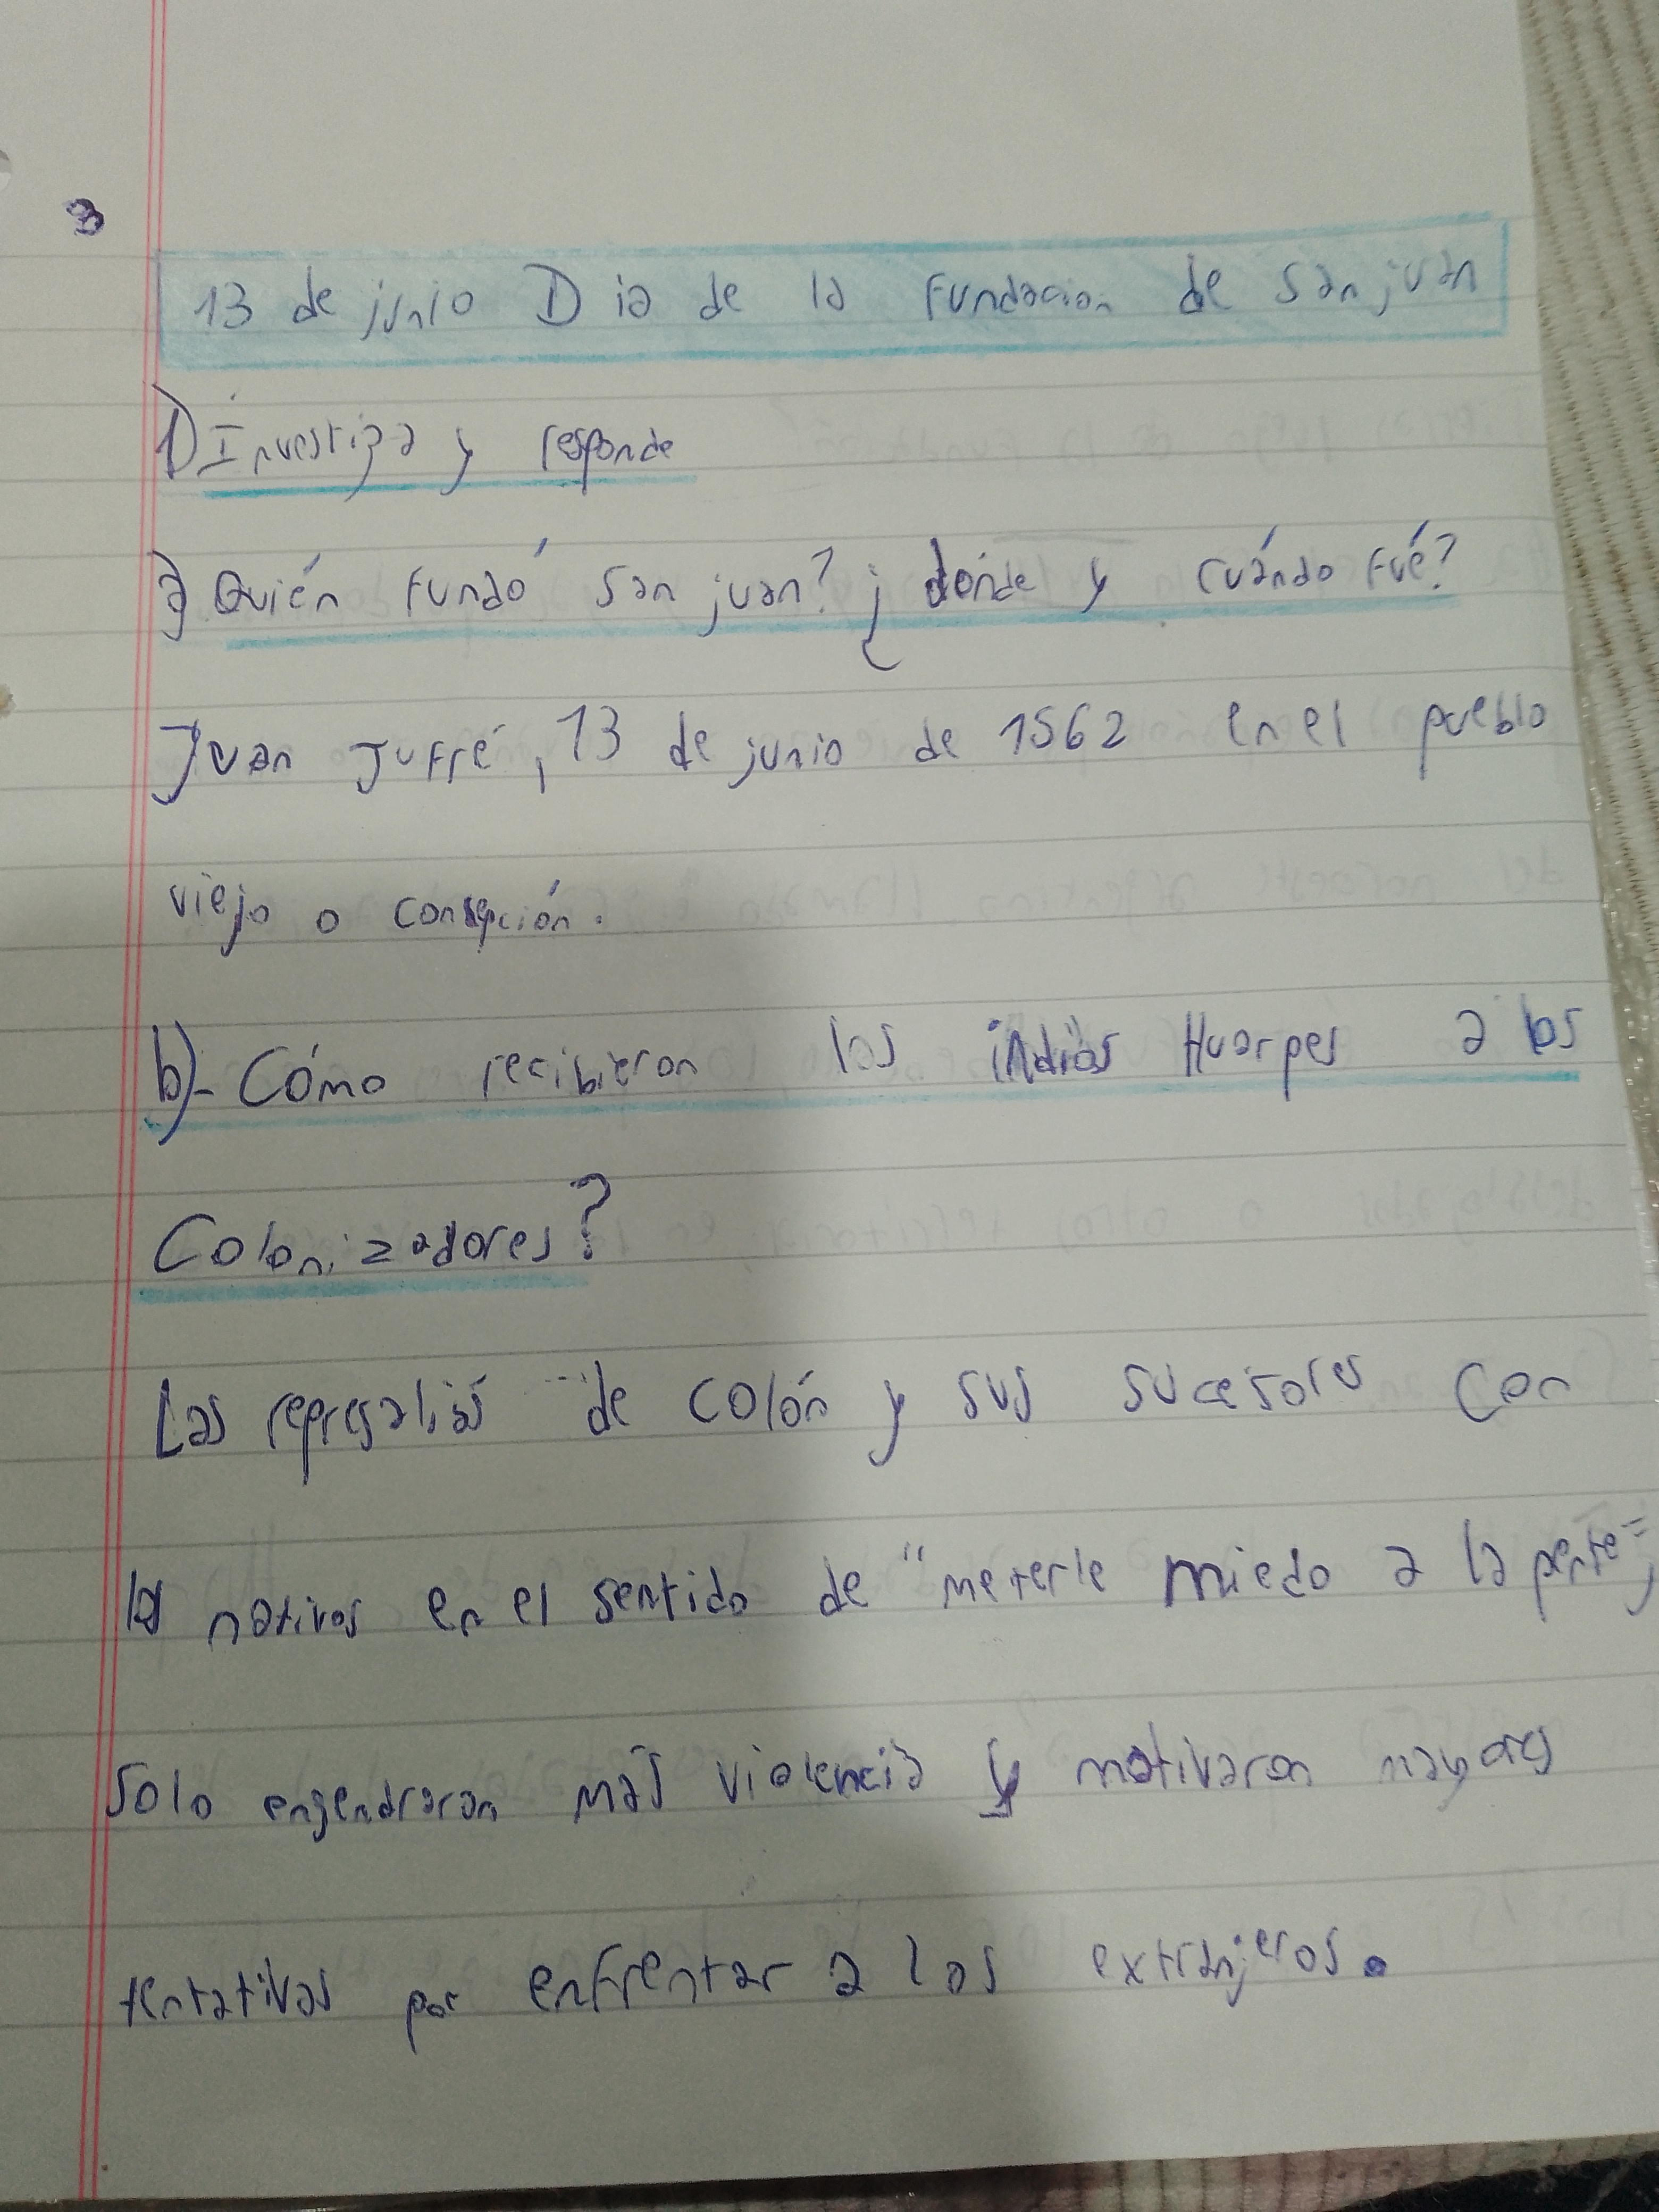 3
13 de junio Dia de la Fundacion de San juan
1) Investiga y responde
a) Quién fundó San juan? ¿ dónde y cuándo fué?
Juan Jufré, 13 de junio de 1562 en el pueblo
viejo o consepción.
b)- Cómo recibieron los indios Huarpes a los
Colonizadores?
Las represalias de Colón y sus sucesores con
los nativos en el sentido de "meterle miedo a la gente",
solo engendraron más violencia y motivaron mayores
tentativas por enfrentar a los extranjeros.